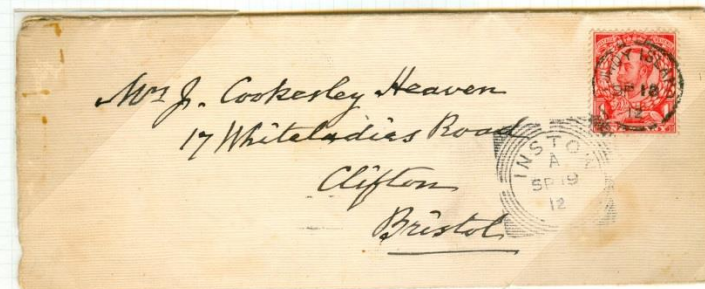 Mrs J. Cookesley Heaven
17 Whiteladies Road
Clifton
Bristol
LUNDY ISLAND
SP 18
12
INSTOW
A
SP 19
12